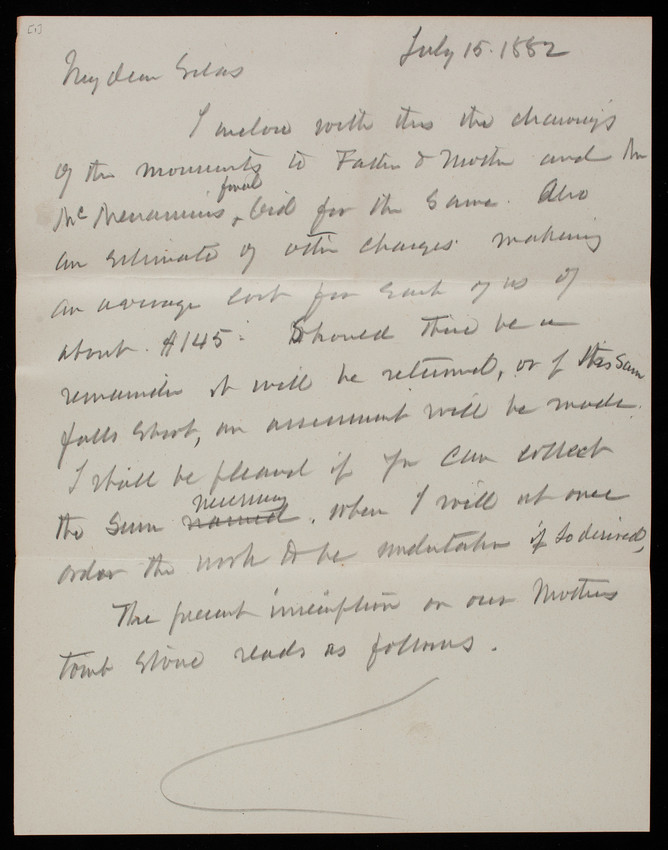 [1]
July 15. 1882
My dear Silas
I inclose with this the drawings
of the monuments to Father & Mother and Mr
Mc Menamins final bid for the same. Also
an estimate of other charges making
an average cost for each of us of
about $145. Should there be a
remainder it will be returned, or if this sum
falls short, an assessment will be made.
I shall be pleased if you can collect
the sum named necessary, when I will at once
order the work to be undertaken if so desired,
The present inscription on our Mothers
tomb stone reads as follows.